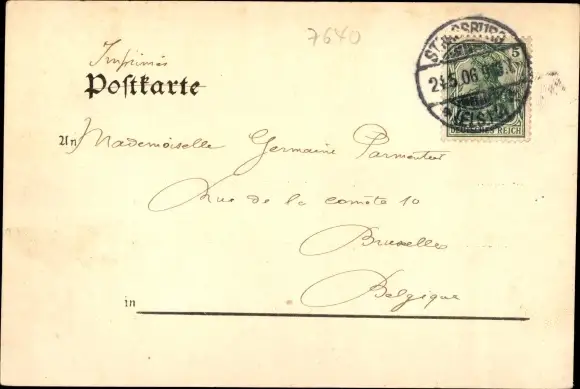 7640
Imprimés
STRASSBURG
24.5.06
(ELS.)
5
DEUTSCHES REICH
Postkarte
An Mademoiselle Germaine Parmentier
Rue de la comète 10
Bruxelles
Belgique
in